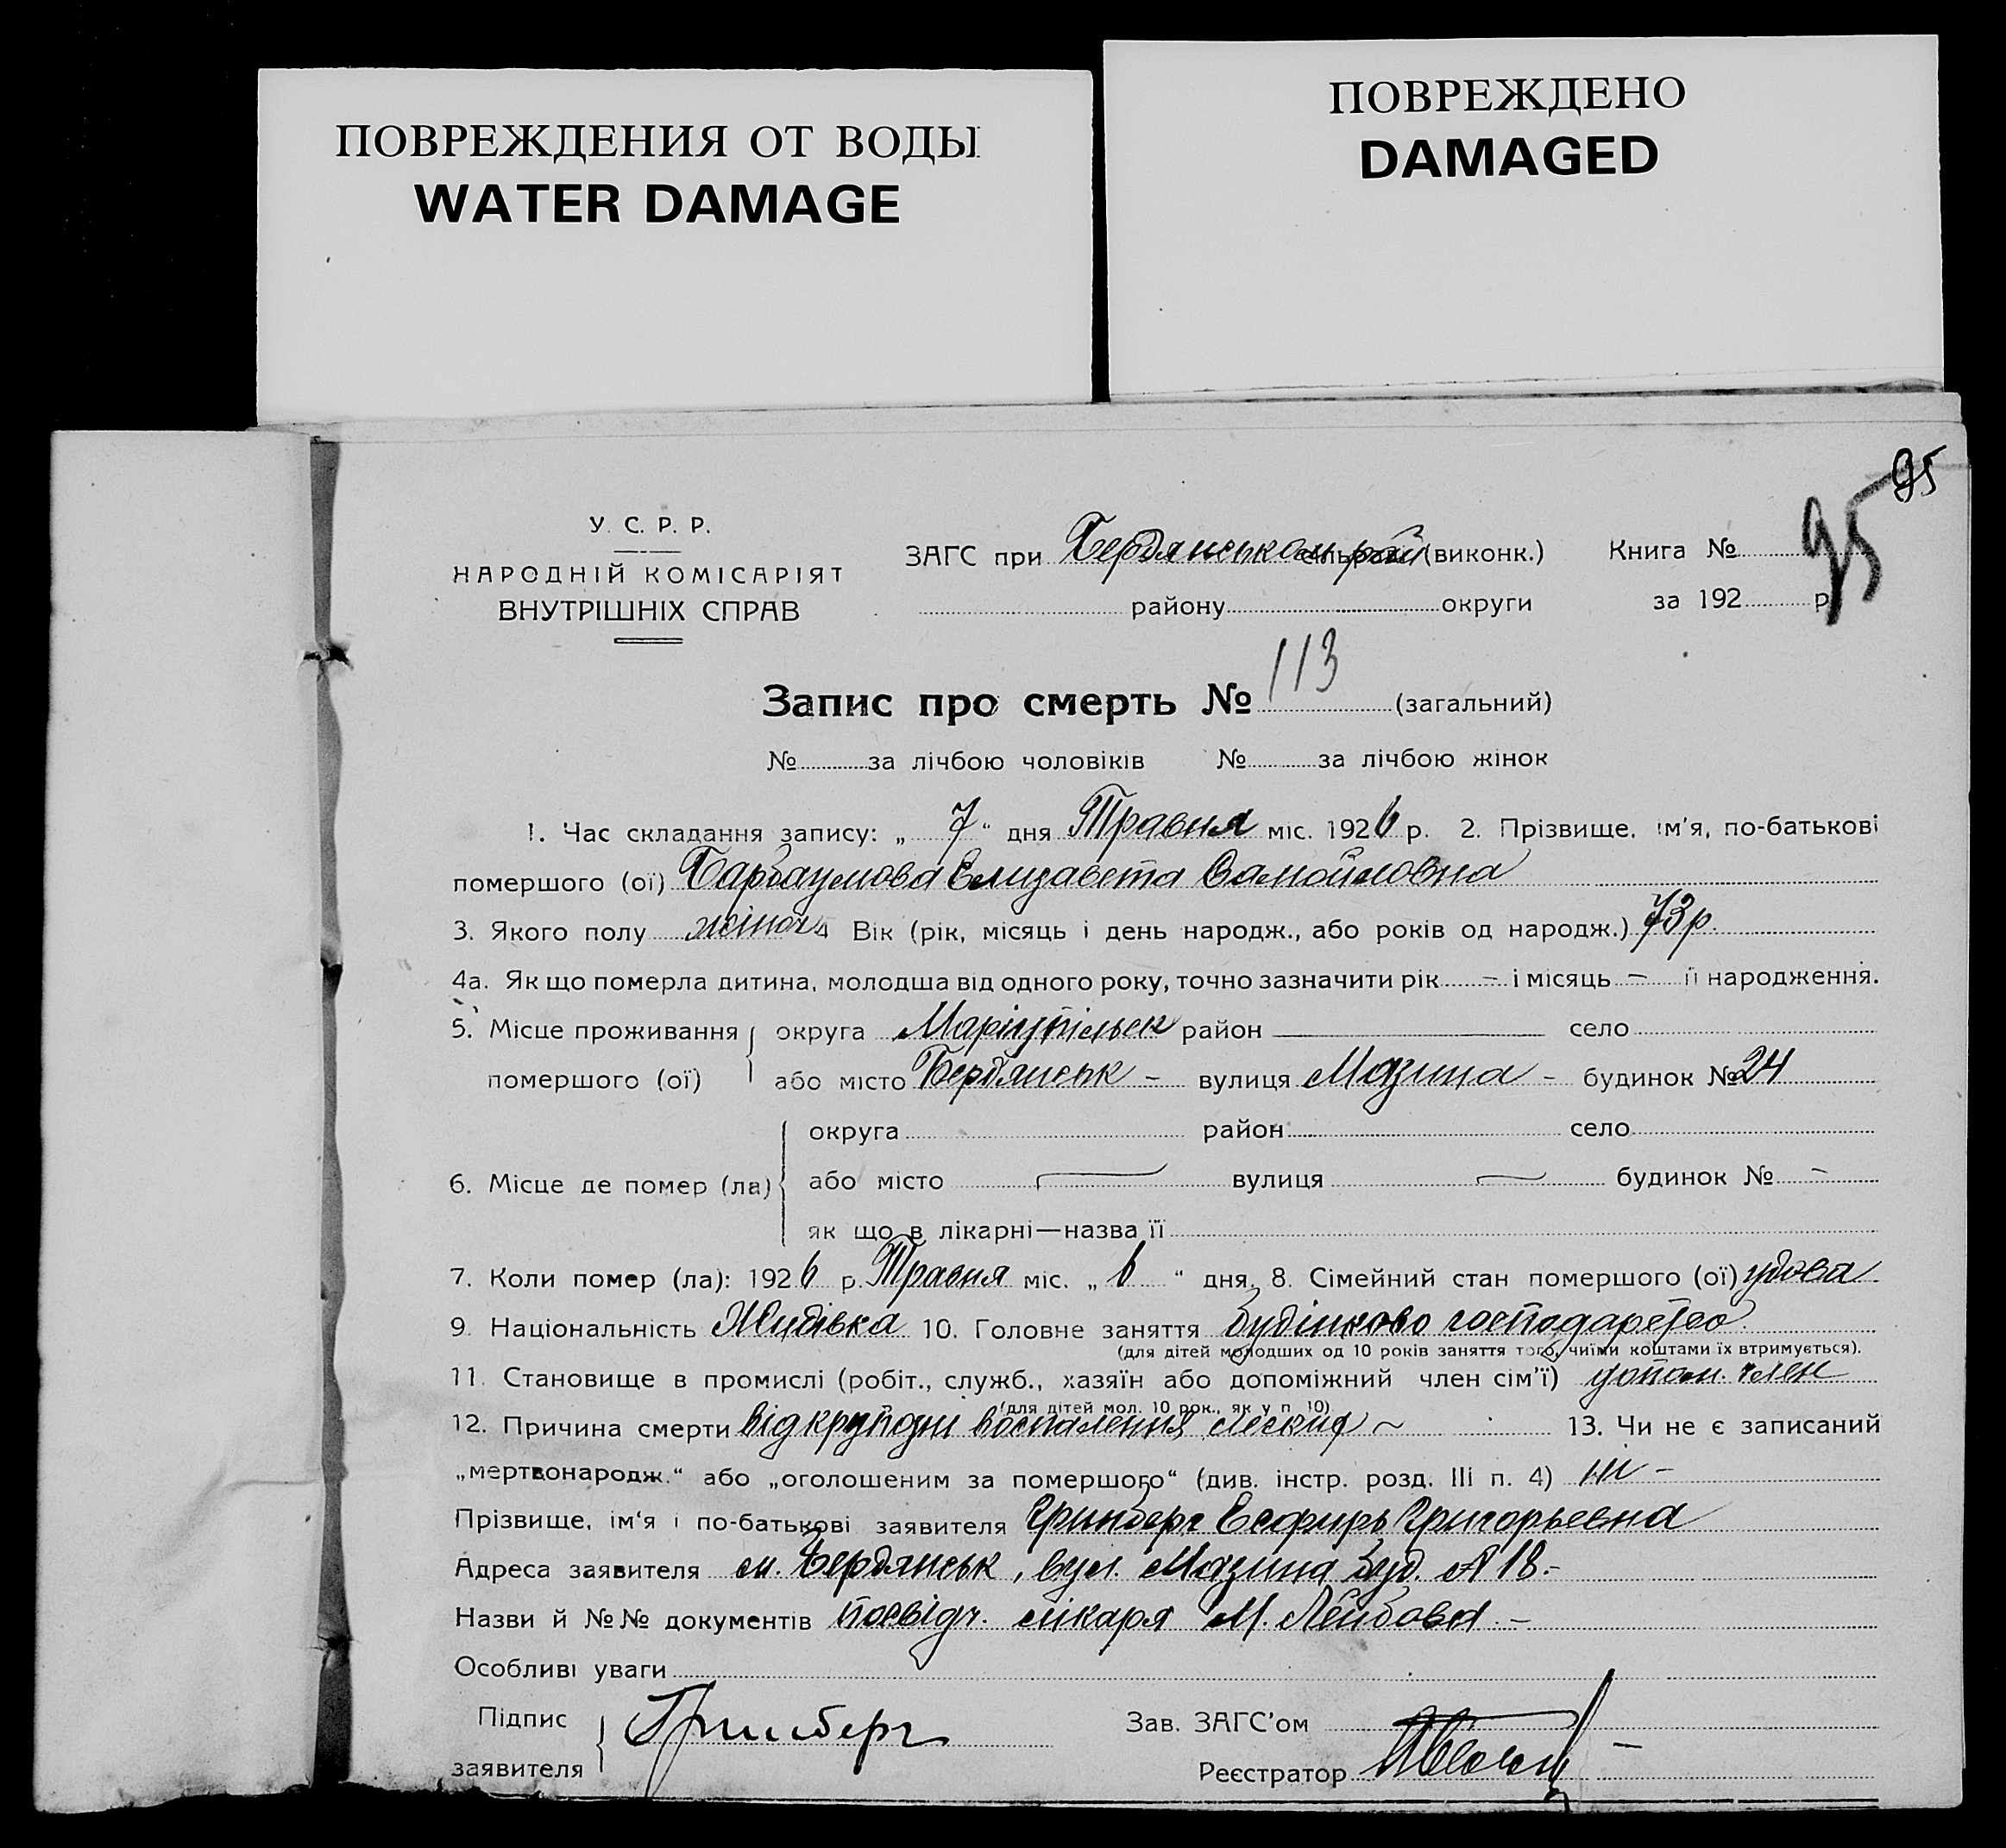 ПОВРЕЖДЕНИЯ ОТ ВОДЫ
WATER DAMAGE
ПОВРЕЖДЕНО
DAMAGED
95
95
У. С. Р. Р.
НАРОДНІЙ КОМІСАРІЯТ
ВНУТРІШНІХ СПРАВ
ЗАГС при Бердянськом рай (виконк.) Книга №
району округи за 192 р.
Запис про смерть № 113 (загальний)
№ за лічбою чоловіків № за лічбою жінок
1. Час складання запису: „ 7 “ дня Травня міс. 1926 р. 2. Прізвище, ім'я, по-батькові
помершого (ої) Барбаумова Елизавета Самойловна
3. Якого полу жіноч 4 Вік (рік, місяць і день народж., або років од народж.) 73 р.
4а. Як що померла дитина, молодша від одного року, точно зазначити рік – і місяць – її народження.
5. Місце проживання округа Маріупільськ район село
помершого (ої) або місто Бердянськ – вулиця Мазина – будинок № 24
округа район село
6. Місце де помер (ла) або місто вулиця будинок № –
як що в лікарні—назва її
7. Коли помер (ла): 1926 р. Травня міс. „ 6 “ дня. 8. Сімейний стан помершого (ої) удова
9. Національність Жидівка 10. Головне заняття будінково господарство
(для дітей молодших од 10 років заняття того, чиїми коштами їх втримується).
11. Становище в промислі (робіт., служб., хазяїн або допоміжний член сім'ї) допом. член
(для дітей мол. 10 рок., як у п. 10)
12. Причина смерти від крупозн воспаления легких 13. Чи не є записаний
„мертвонародж.“ або „оголошеним за помершого“ (див. інстр. розд. III п. 4) ні –
Прізвище, ім'я і по-батькові заявителя Гринберг Есфирь Григорьевна
Адреса заявителя м. Бердянськ, вул. Мазина буд. № 18. –
Назви й №№ документів посвідч. лікаря М. Лейбова. –
Особливі уваги
Підпис Гринберг Зав. ЗАГС'ом
заявителя Реєстратор